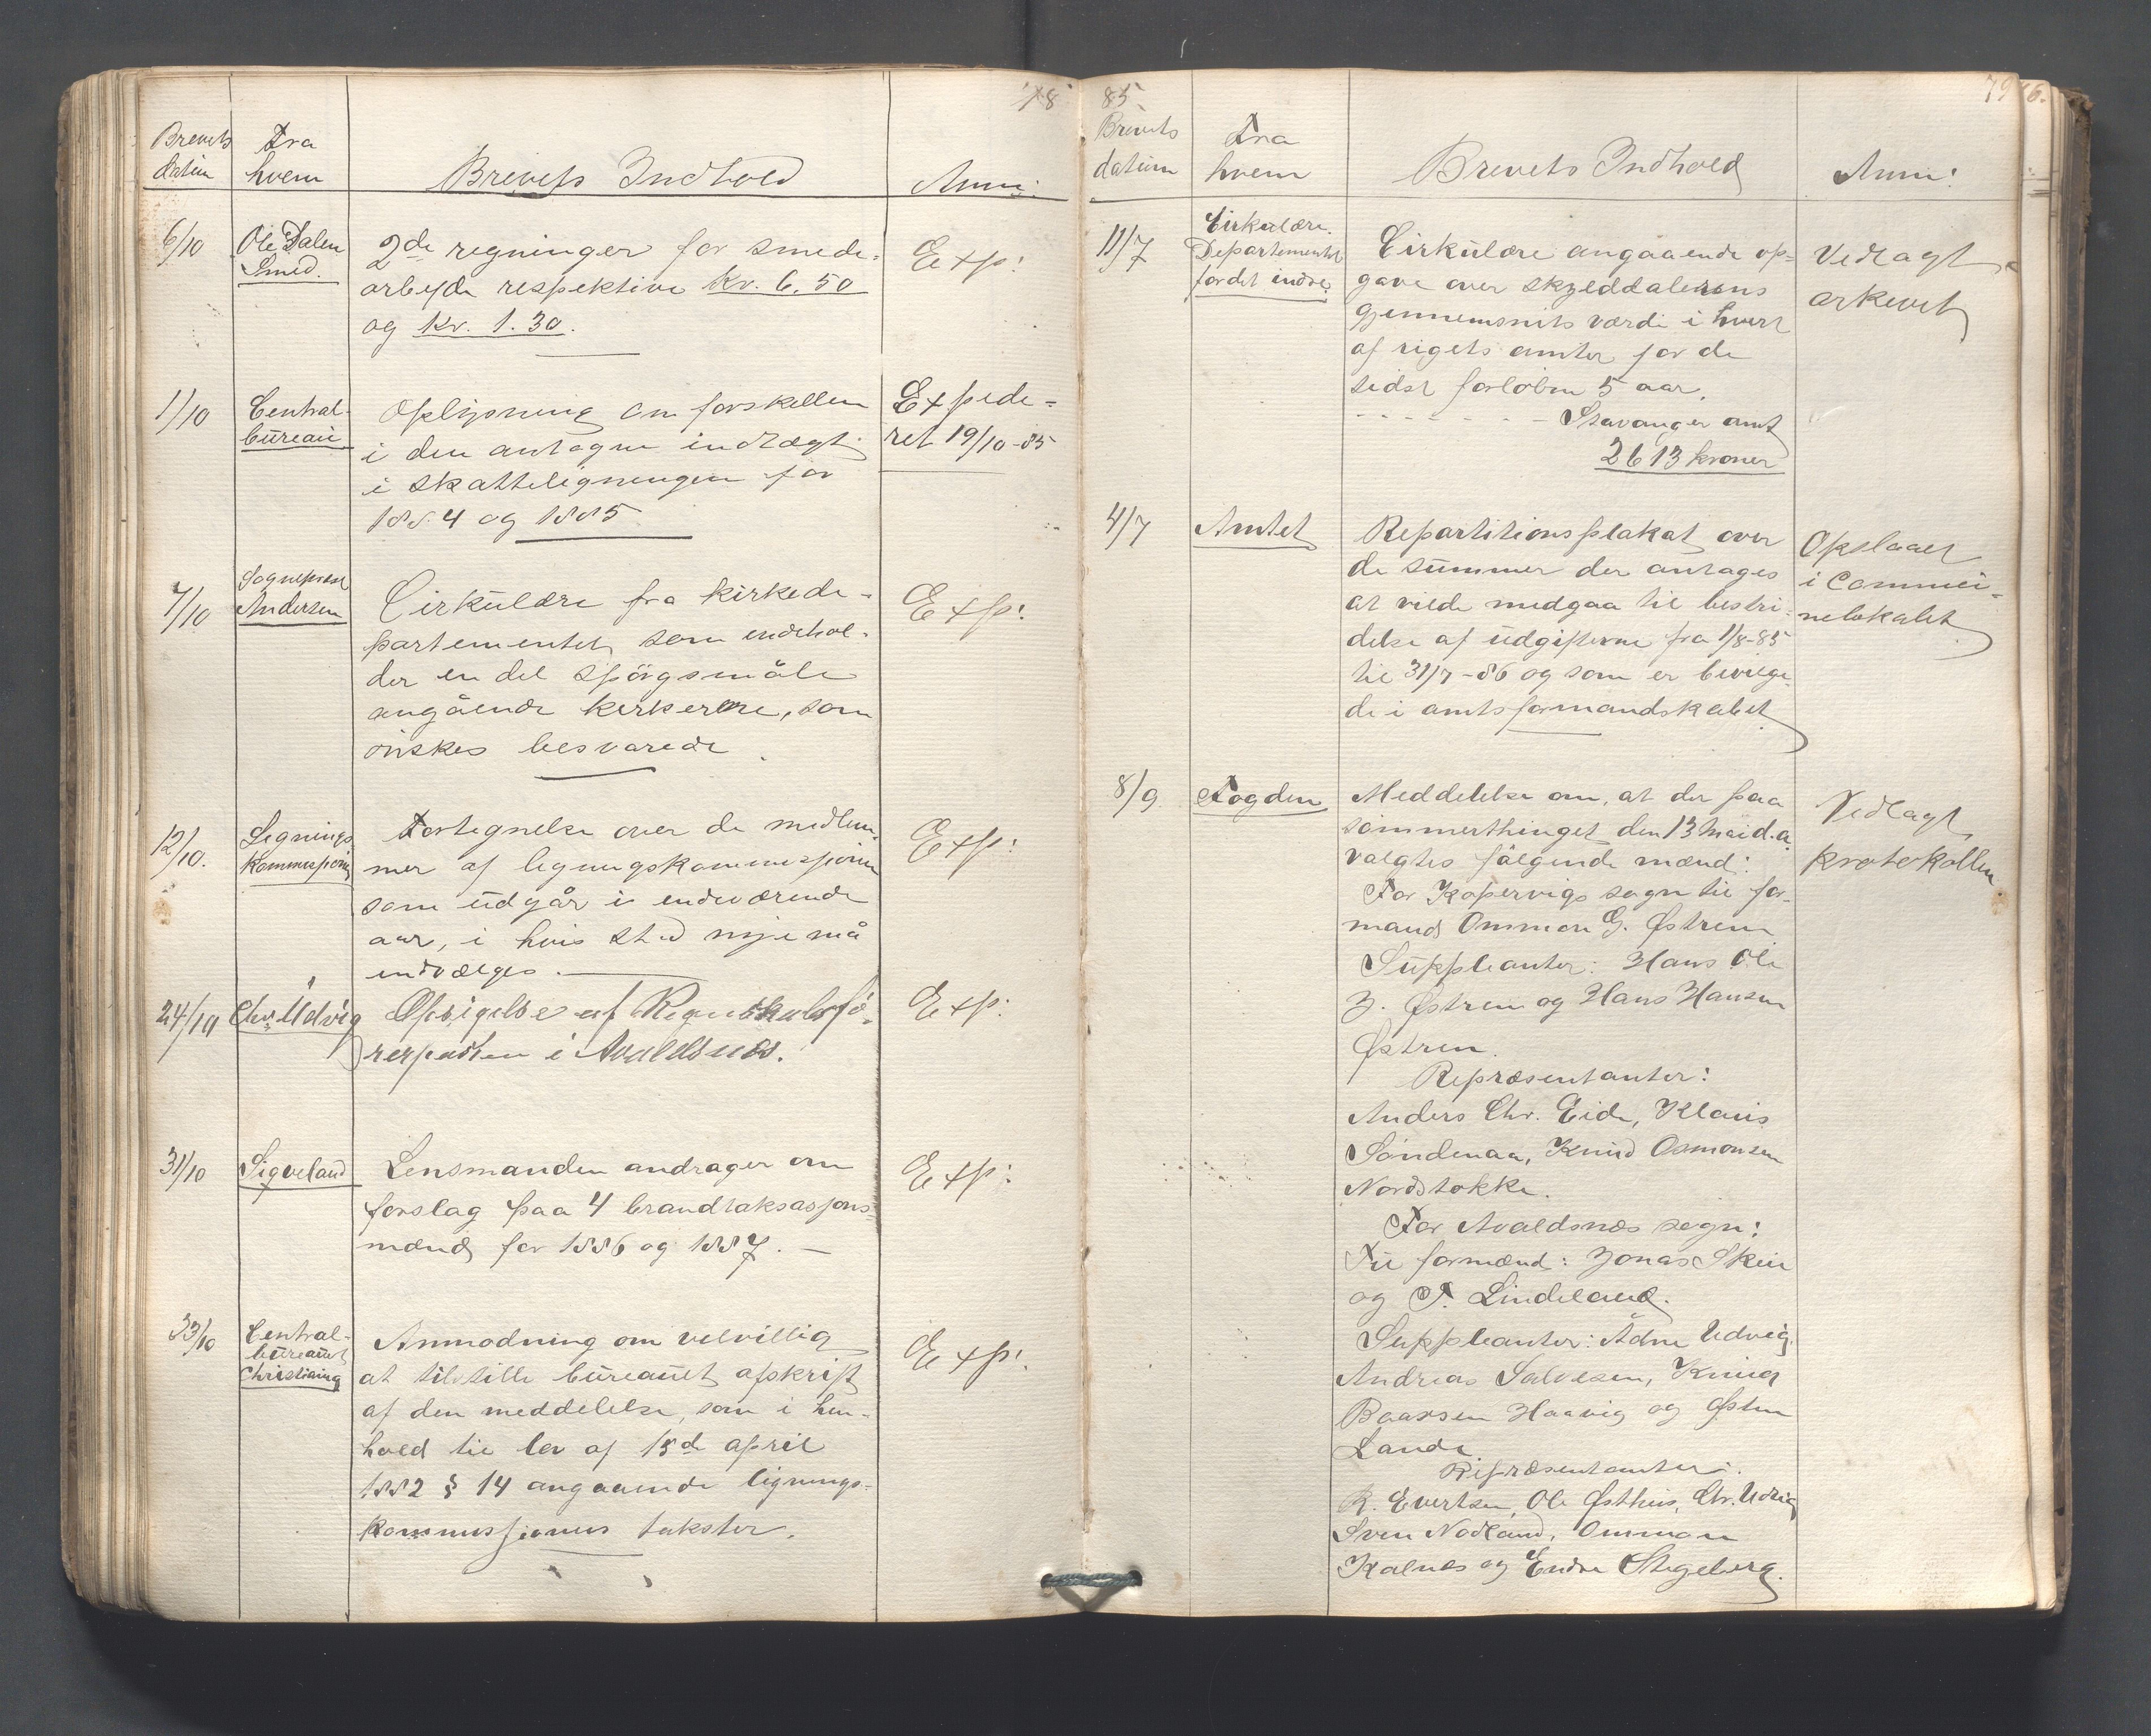 18
Brevets datum
Fra hvem
Brevets Indhold
Anm:
6/10
Ole Dalen
Smed.
2de regninger for smede-
arbejde respektive Kr. 6.50
og Kr. 1.30.
Exp:
1/10
Central-
bureau
Oplysning om forskellen
i den antagne indtægt
i skatteligningen for
1884 og 1885
Expede-
ret 19/10-85
7/10
Sognepræst
Andersen
Cirkulære fra kirkede-
partementet, som indehol-
der en del spörgsmåle
angående kirkerne, som
önskes besvarede.
Exp:
12/10.
Legnings
kommissjonen
Fortegnelse over de medlem-
mer af legningskommissjonen
som udgår i indeværende
aar, i hvis sted nye må
indvælges.
Exp:
24/10
Chr. Udvig
Opsigelse af Regnskabsfö-
rerposten i Avaldsnes.
Exp:
31/10
Sigveland
Lensmanden andrager om
forslag paa 4 brandtaksasjons-
mænd for 1886 og 1887.
Exp:
33/10
Central-
bureauet
Christiania
Anmodning om velvillig
at tilstille bureauet afskrift
af den meddelelse, som i hen-
hold til lov af 15d april
1882 § 14 angaaende lignings-
kommissjonens takster.
Exp:
85
79
Brevets datum
Fra hvem
Brevets Indhold
Anm:
11/7
Cirkulære.
Departementet
for det indre.
Cirkulære angaaende op-
gave over skylddalerens
gjennemsnits værdi i hvert
af rigets amter for de
sidst forløbne 5 aar.
- - - - - - - Stavanger amt
2613 kroner
Vedlagt
arkevet
4/7
Amtet
Repartitionsplakat over
de summer der antages
at vilde medgaa til bestri-
delse af udgifterne fra 1/8-85
til 31/7-86 og som er bevilge-
de i amtsformandskabet
Opslaaet
i Commu-
nelokalet
8/9
Fogden
Meddelelse om, at der paa
sommerthinget den 13 Mai d.a.
valgtes fölgende mænd:
For Kopervigs sogn til for-
mand Ommon G. Østrem
Suppleanter: Hans Ole
J. Østrem og Hans Hansen
Østrem.
Repræsentanter:
Anders Chr. Eide, Klaus
Söndenaa, Knud Osmonsen
Nordstokke.
For Avaldsnæs sogn:
Til formænd: Jonas Skeie
og T. Lindeland.
Suppleanter: Ådne Udvig,
Andreas Salvesen, Knud
Baarsen Haavig og Østen
Lande.
Repræsentanter:
R. Evertsen, Ole Østhus, Chr. Udvig
Sven Nodland, Ommon
Kalnes og Endre Stegeberg.
Vedlagt
protokollen